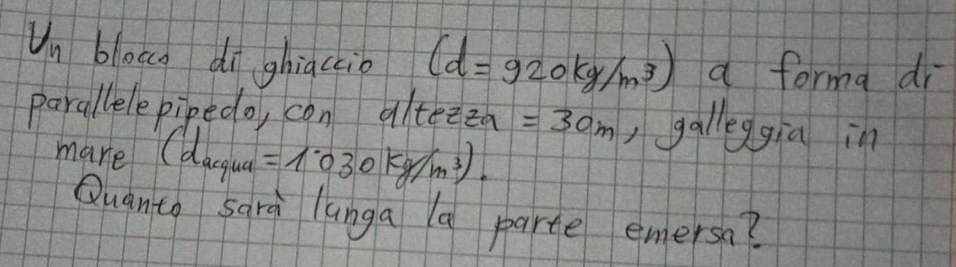 Un blocco di ghiaccio (d = 920kg/m³) a forma di
parallelepipedo, con altezza = 30m, galleggia in
mare (dacqua = 1'030 kg/m³).
Quanto sarà lunga la parte emersa?